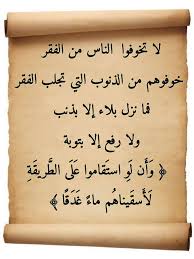 لا تخوفوا الناس من الفقر
خوفوهم من الذنوب التي تجلب الفقر
فما نزل بلاء إلا بذنب
ولا رفع إلا بتوبة
﴿ وَأَن لَوِ اسْتَقَامُوا عَلَى الطَّرِيقَةِ
لَأَسْقَيْنَاهُم مَاءً غَدَقًا ﴾